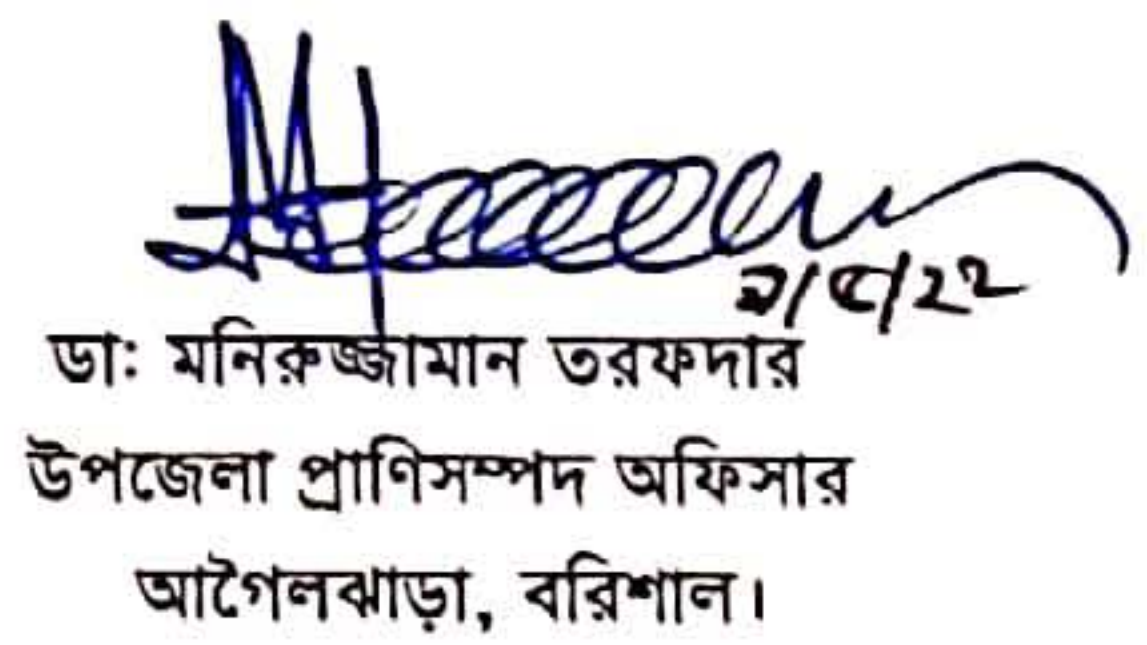 ২/৫/২২
ডা: মনিরুজ্জামান তরফদার
উপজেলা প্রাণিসম্পদ অফিসার
আগৈলঝাড়া, বরিশাল।